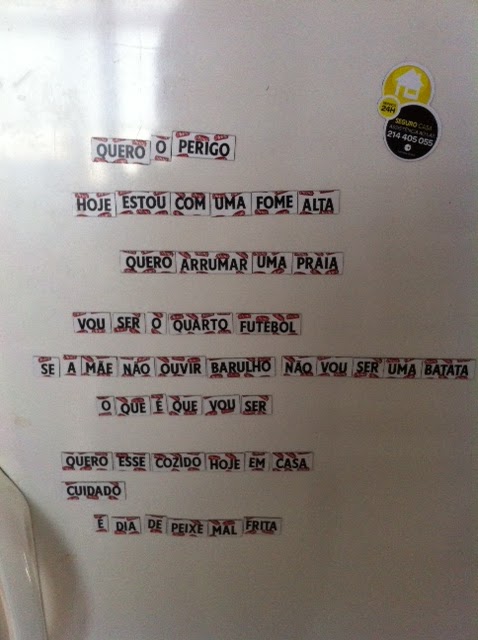 24H
SEGURO CASA
214 405 055
QUERO O PERIGO
HOJE ESTOU COM UMA FOME ALTA
QUERO ARRUMAR UMA PRAIA
VOU SER O QUARTO FUTEBOL
SE A MÃE NÃO OUVIR BARULHO NÃO VOU SER UMA BATATA
O QUE É QUE VOU SER
QUERO ESSE COZIDO HOJE EM CASA
CUIDADO
É DIA DE PEIXE MAL FRITA